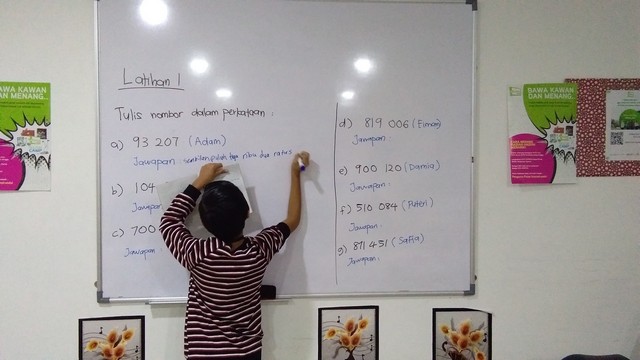 Latihan 1
Tulis nombor dalam perkataan :
a) 93 207 (Adam)
Jawapan : sembilan puluh tiga ribu dua ratus
b) 104
Jawapan
c) 700
Jawapan
d) 819 006 (Eiman)
Jawapan
e) 900 120 (Damia)
Jawapan :
f) 510 084 (Puteri)
Jawapan :
g) 871 451 (Safia)
Jawapan :
BAWA KAWAN
DAN MENANG..
BAWA KAWAN
DAN MENANG..